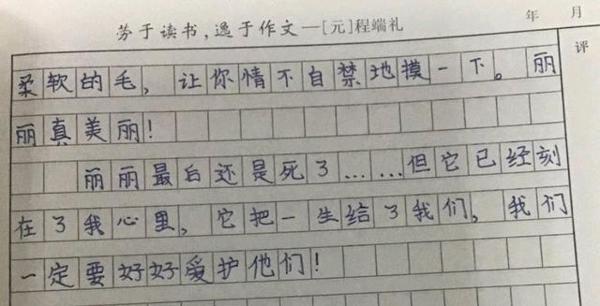 劳于读书,逸于作文—[元]程端礼
年 月
评
柔软的毛，让你情不自禁地摸一下。丽
丽真美丽！
丽丽最后还是死了……但它已经刻
在了我心里，它把一生给了我们，我们
一定要好好爱护他们！